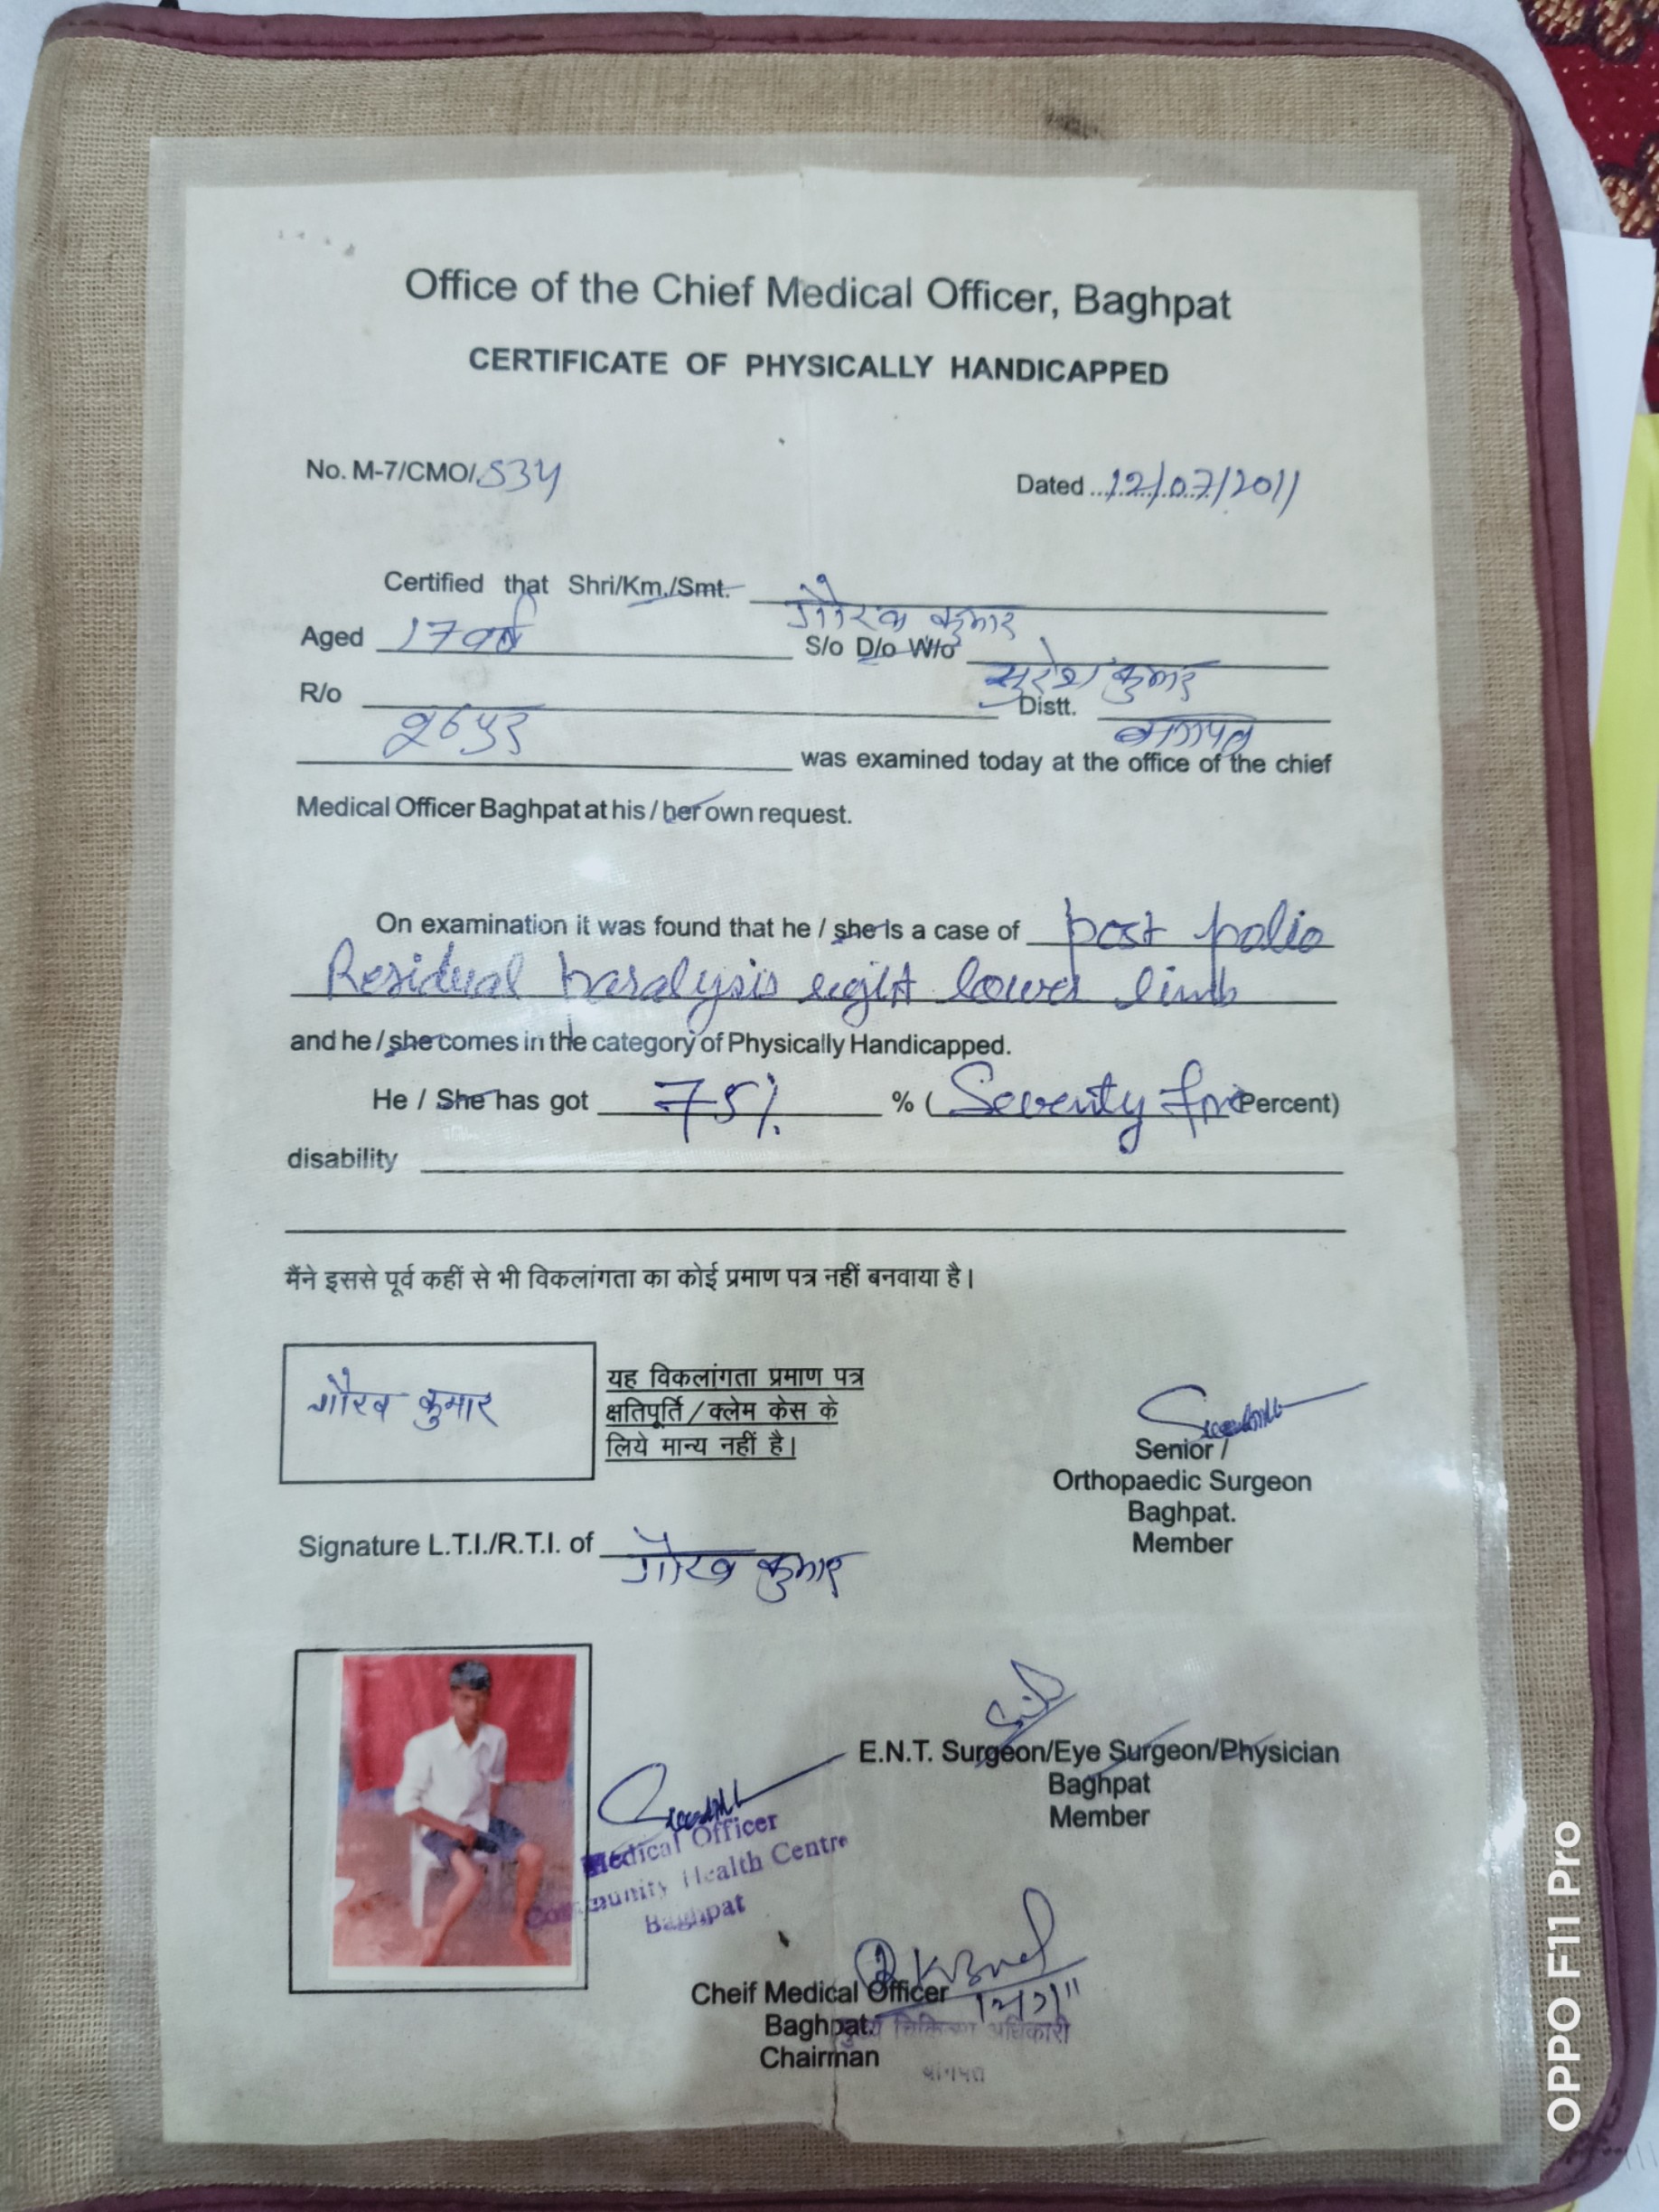 Office of the Chief Medical Officer, Baghpat
CERTIFICATE OF PHYSICALLY HANDICAPPED
No. M-7/CMO/534
Dated ...12/07/2011
Certified that Shri/Km./Smt. गौरव कुमार
Aged 17 वर्ष S/o D/o W/o सुरेश कुमार
R/o Distt. बागपत
was examined today at the office of the chief
Medical Officer Baghpat at his / her own request.
On examination it was found that he / she is a case of post polio
Residual paralysis right lower limb
and he / she comes in the category of Physically Handicapped.
He / She has got 75% % ( Seventy five Percent)
disability
मैंने इससे पूर्व कहीं से भी विकलांगता का कोई प्रमाण पत्र नहीं बनवाया है।
गौरव कुमार
यह विकलांगता प्रमाण पत्र
क्षतिपूर्ति / क्लेम केस के
लिये मान्य नहीं है।
Senior /
Orthopaedic Surgeon
Baghpat.
Member
Signature L.T.I./R.T.I. of गौरव कुमार
E.N.T. Surgeon/Eye Surgeon/Physician
Baghpat
Member
Medical Officer
Community Health Centre
Baghpat
Cheif Medical Officer
Baghpat.
Chairman
मुख्य चिकित्सा अधिकारी
बागपत
OPPO F11 Pro